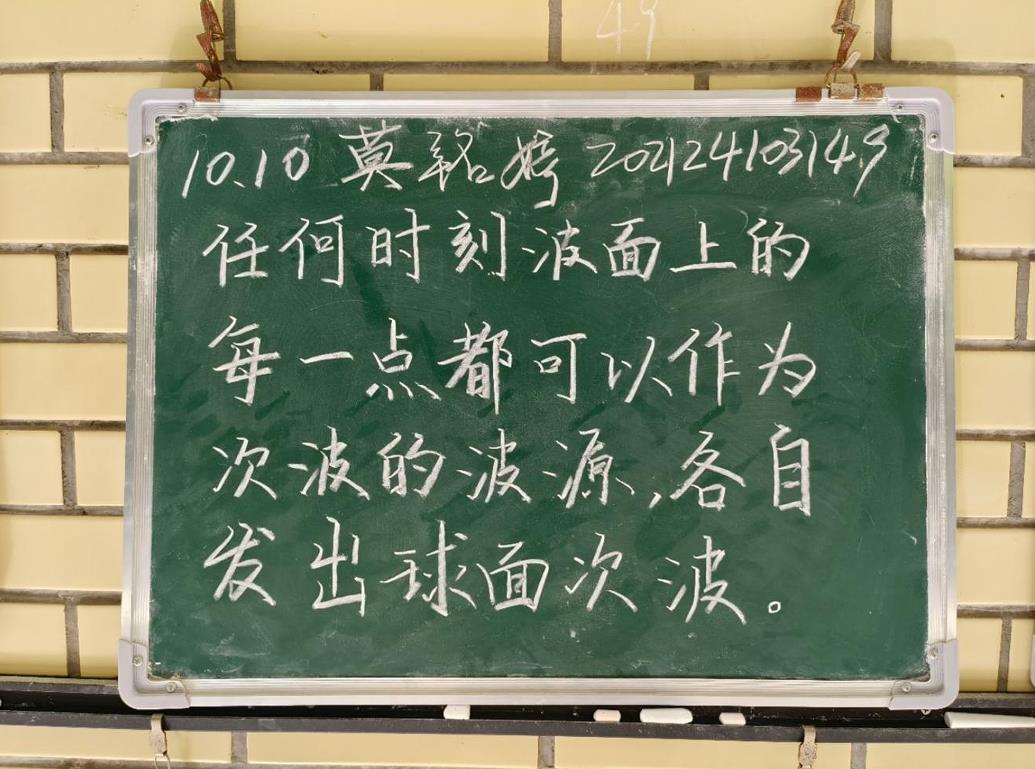 49
10.10 莫銘婷 202124103149
任何时刻波面上的
每一点都可以作为
次波的波源,各自
发出球面次波。